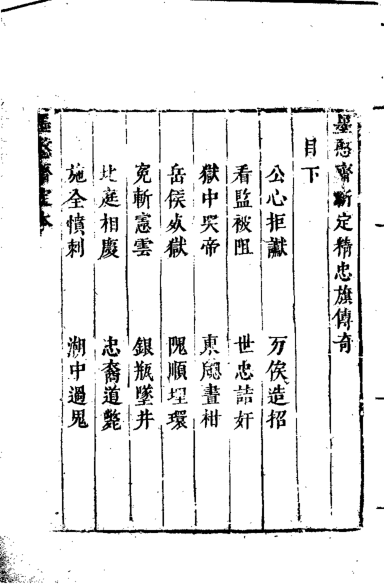 墨憨齋新定精忠旗傳奇
目下
公心拒讞　万俟造招
看監被阻　世忠詰奸
獄中哭帝　東窻畫柑
岳侯死獄　隗順埋環
冤斬憲雲　銀瓶墜井
北庭相慶　忠裔道斃
施全憤刺　湖中遇鬼
墨憨齋定本